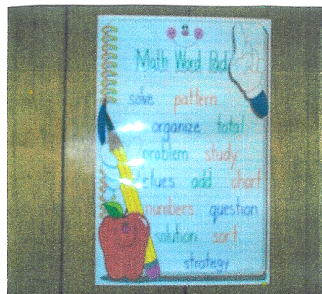 Math Word Pad
solve pattern
organize total
problem study
clues add chart
numbers question
solution sort
strategy